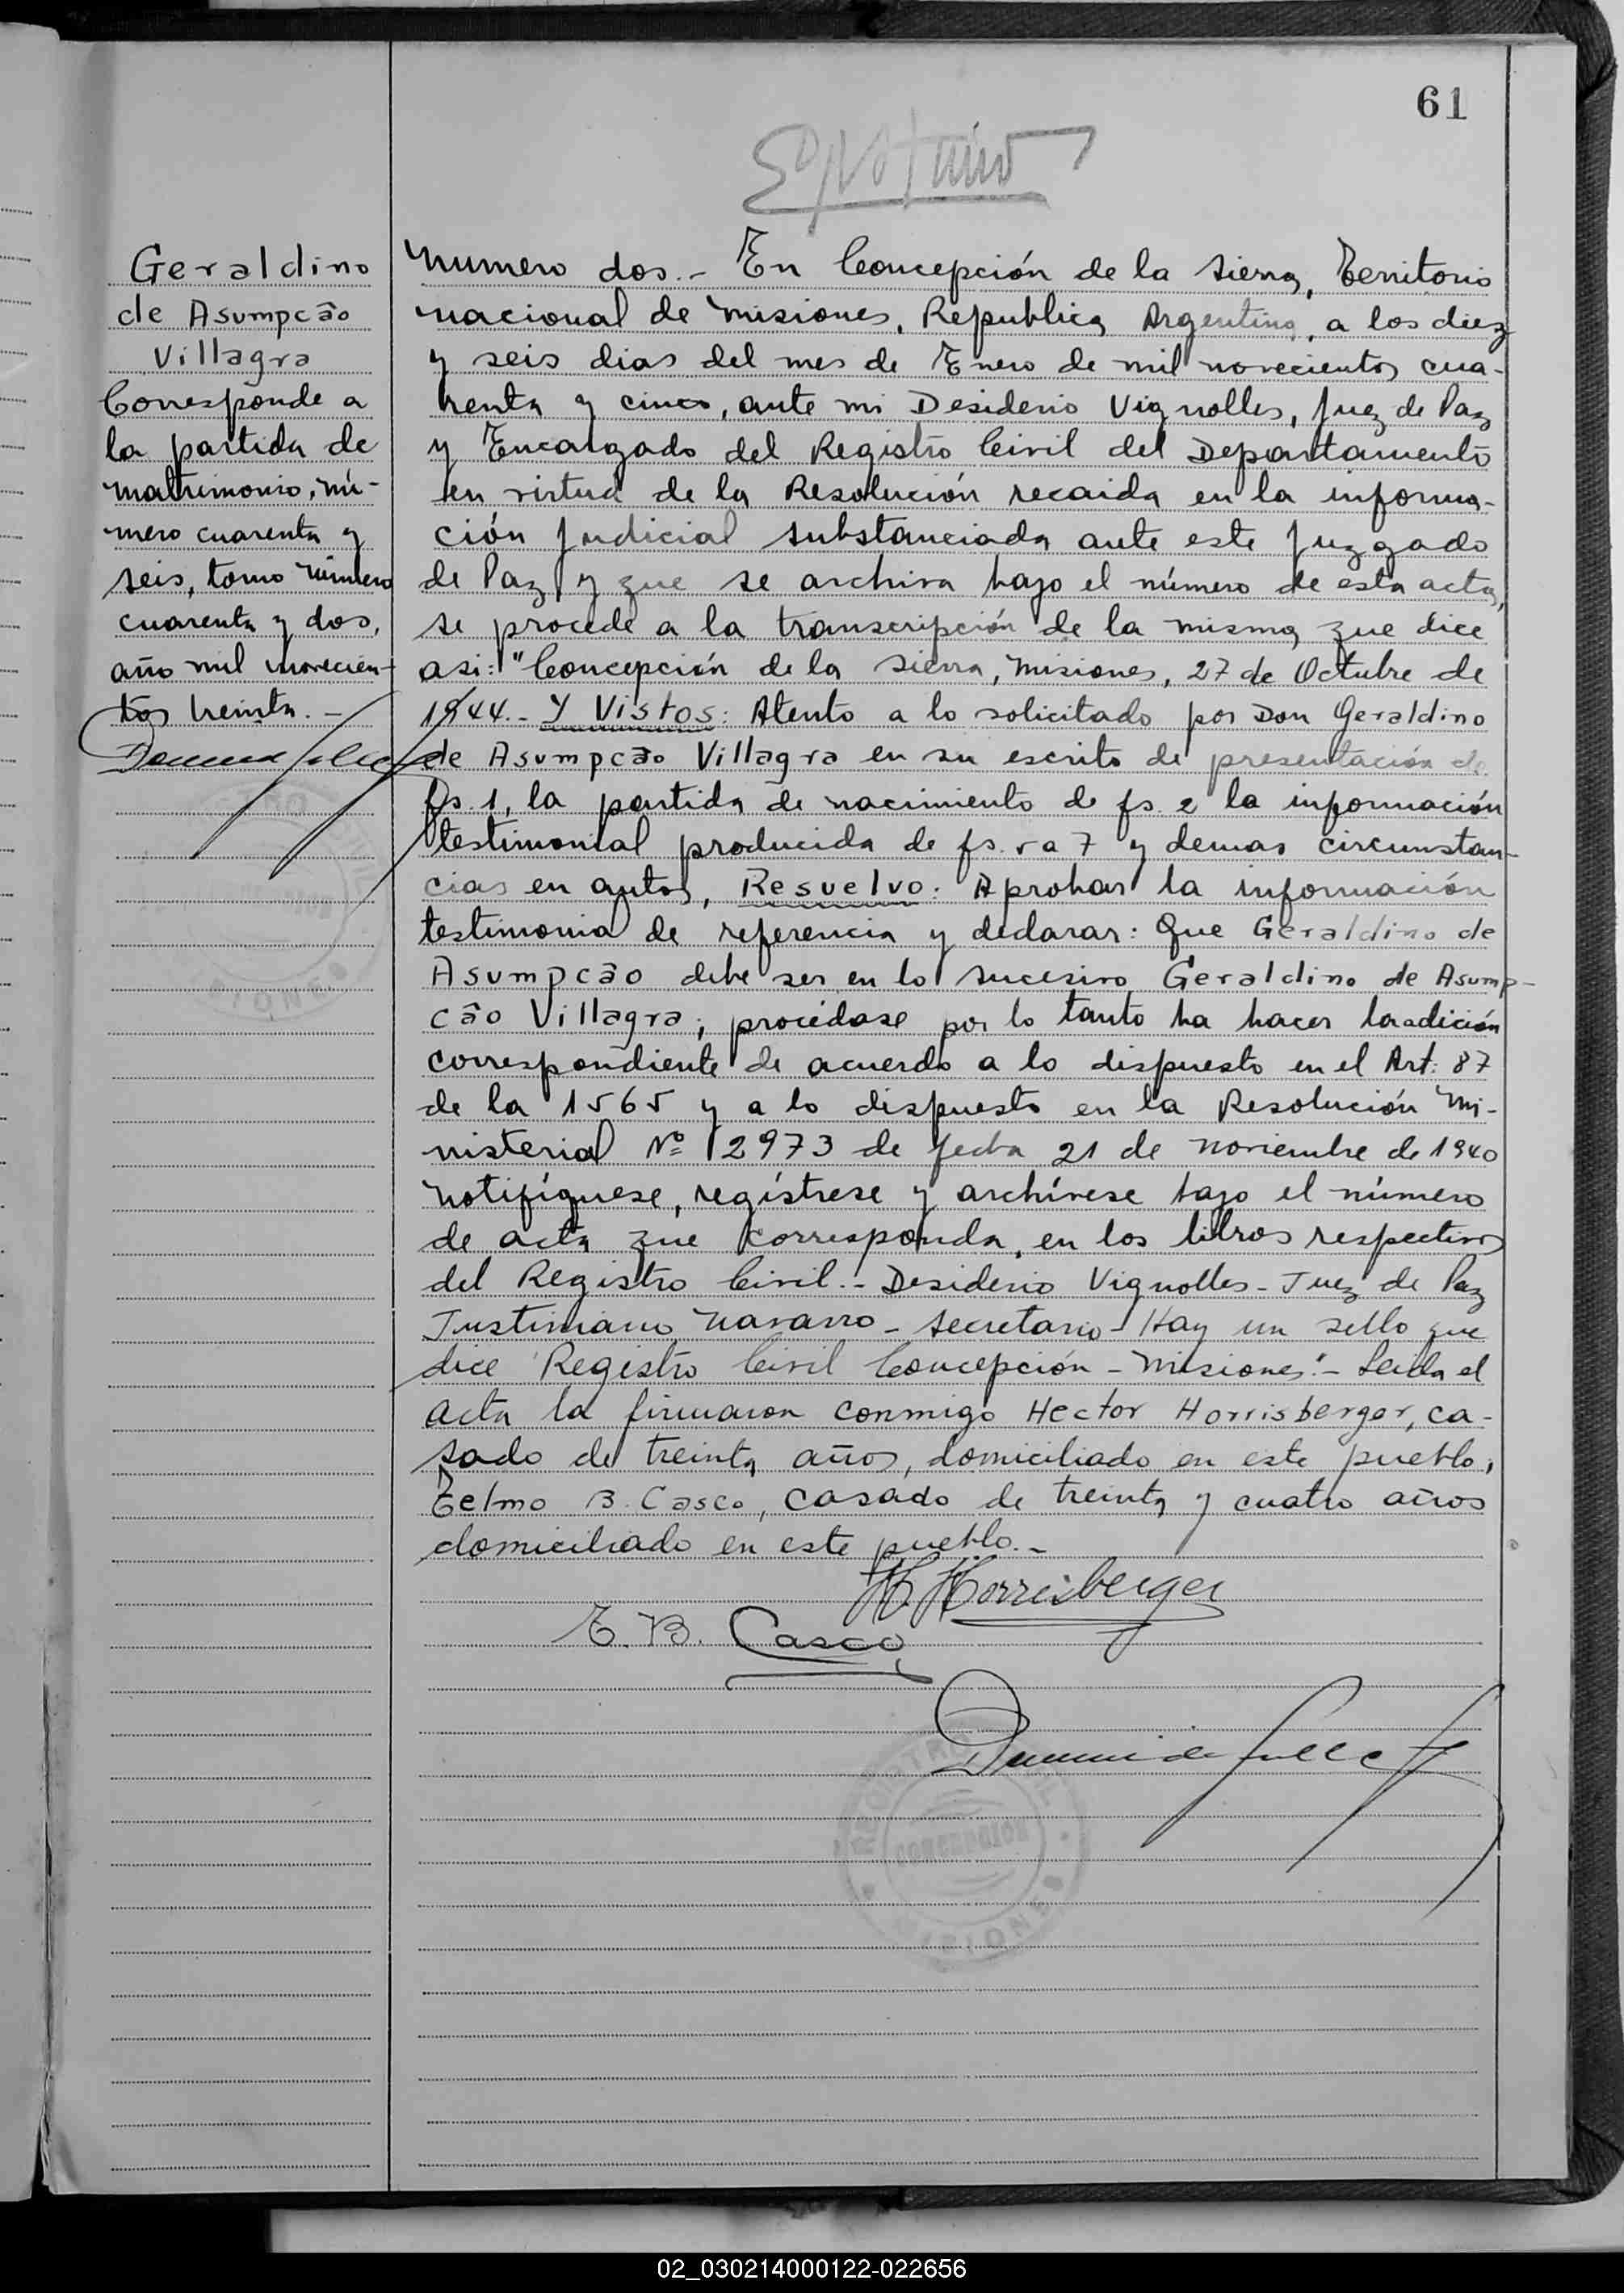 61
Geraldino
de Asumpcão
Villagra
Corresponde a
la partida de
matrimonio, nú-
mero cuarenta y
seis, tomo número
cuarenta y dos,
año mil novecien-
tos treinta.-
Numero dos.- En Concepción de la Sierra, Territorio
nacional de Misiones, Republica Argentina, a los diez
y seis dias del mes de Enero de mil novecientos cua-
renta y cinco, ante mi Desiderio Vignolles, Juez de Paz
y Encargado del Registro Civil del Departamento
en virtud de la Resolución recaida en la informa-
ción Judicial substanciada ante este Juzgado
de Paz y que se archiva bajo el número de esta acta,
se procede a la transcripción de la misma, que dice
asi: "Concepción de la Sierra, Misiones, 27 de Octubre de
1944.- Y Vistos: Atento a lo solicitado por Don Geraldino
de Asumpcão Villagra en su escrito de presentación de
fs. 1, la partida de nacimiento de fs. 2 la información
testimonial producida de fs. 5 a 7 y demas circunstan-
cias en autos, Resuelvo: Aprobar la información
testimonia de referencia y declarar: Que Geraldino de
Asumpcão debe ser en lo sucesivo Geraldino de Asump-
cão Villagra; procédase por lo tanto ha hacer la adición
correspondiente de acuerdo a lo dispuesto en el Art: 87
de la 1565 y a lo dispuesto en la Resolución Mi-
nisterial Nº 2973 de fecha 21 de Noviembre de 1940
notifíquese, regístrese y archívese bajo el número
de acta que corresponda, en los libros respectivos
del Registro Civil.- Desiderio Vignolles - Juez de Paz
Justiniano Navarro - Secretario - Hay un sello que
dice "Registro Civil Concepción - Misiones".- Leida el
acta la firmaron conmigo Hector Horrisberger, ca-
sado de treinta años, domiciliado en este pueblo,
Telmo B. Casco, casado de treinta y cuatro años
domiciliado en este pueblo.-
H. Horrisberger
T. B. Casco
CONCEPCION
02_030214000122-022656